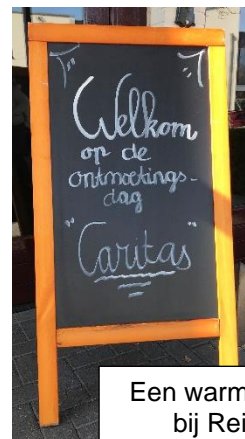 Welkom
op de
ontmoetings-
dag
"Caritas"
Een warm
bij Rei